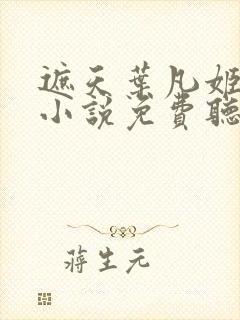 遮天葉凡姬
小說免費聽
蔣生元